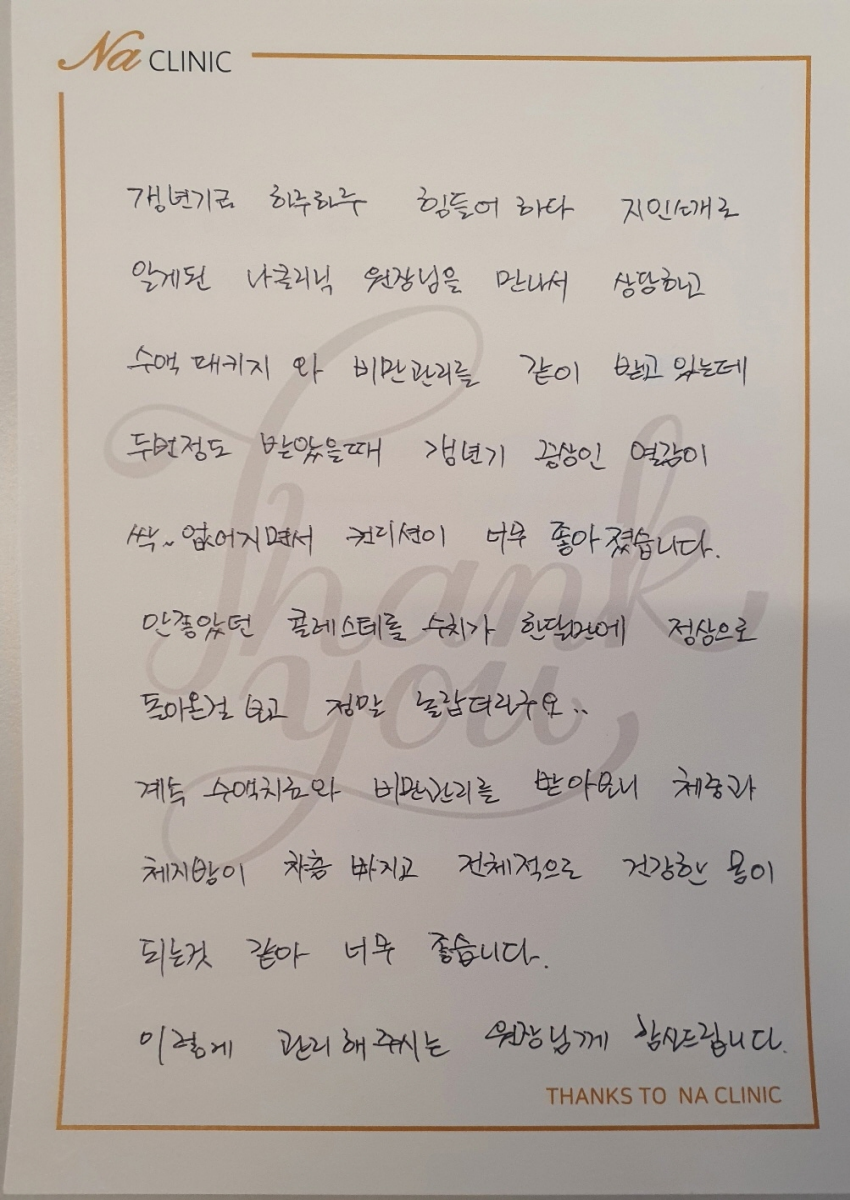 Na CLINIC
갱년기로 하루하루 힘들어 하다 지인소개로
알게된 나클리닉 원장님을 만나서 상담하고
수액 패키지 와 비만관리를 같이 받고 있는데
두번정도 받았을때 갱년기 증상인 열감이
싹~ 없어지면서 컨디션이 너무 좋아졌습니다.
안좋았던 콜레스테롤 수치가 한달만에 정상으로
돌아온걸 보고 정말 놀랍더라구요..
계속 수액치료와 비만관리를 받아보니 체중과
체지방이 차츰 빠지고 전체적으로 건강한 몸이
되는것 같아 너무 좋습니다.
이렇게 관리해주시는 원장님께 감사드립니다.
Thank
you
THANKS TO NA CLINIC